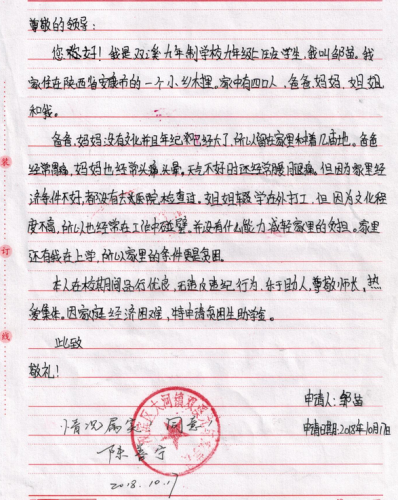 尊敬的领导:
您好!我是双溪九年制学校九年级上的在学生,我叫邹苗。我
家住在陕西省安康市的一个小乡村里。家中有四口人,爸爸、妈妈、姐姐
和我。
爸爸、妈妈没有文化并且年纪都已经大了,所以留在家里种着几亩地。爸爸
经常胃病,妈妈也经常头痛头晕,天气不好时还经常腰闪腿痛。但因为家里经
济条件不好,都没有去医院检查过。姐姐辍学在外打工,但因为文化程
度不高,所以也经常在工作中碰壁,并没有什么能力减轻家里的负担。家里
还有我在上学,所以家里的条件更是贫困。
本人在校期间品行优良,无违反违纪行为,乐于助人,尊敬师长,热
爱集体。因家庭经济困难,特申请贫困生助学金。
此致
敬礼!
申请人:邹苗
申请日期:2018年10月17日
情况属实 同意
陈善宁
2018.10.17
区大河镇双溪
装
订
线